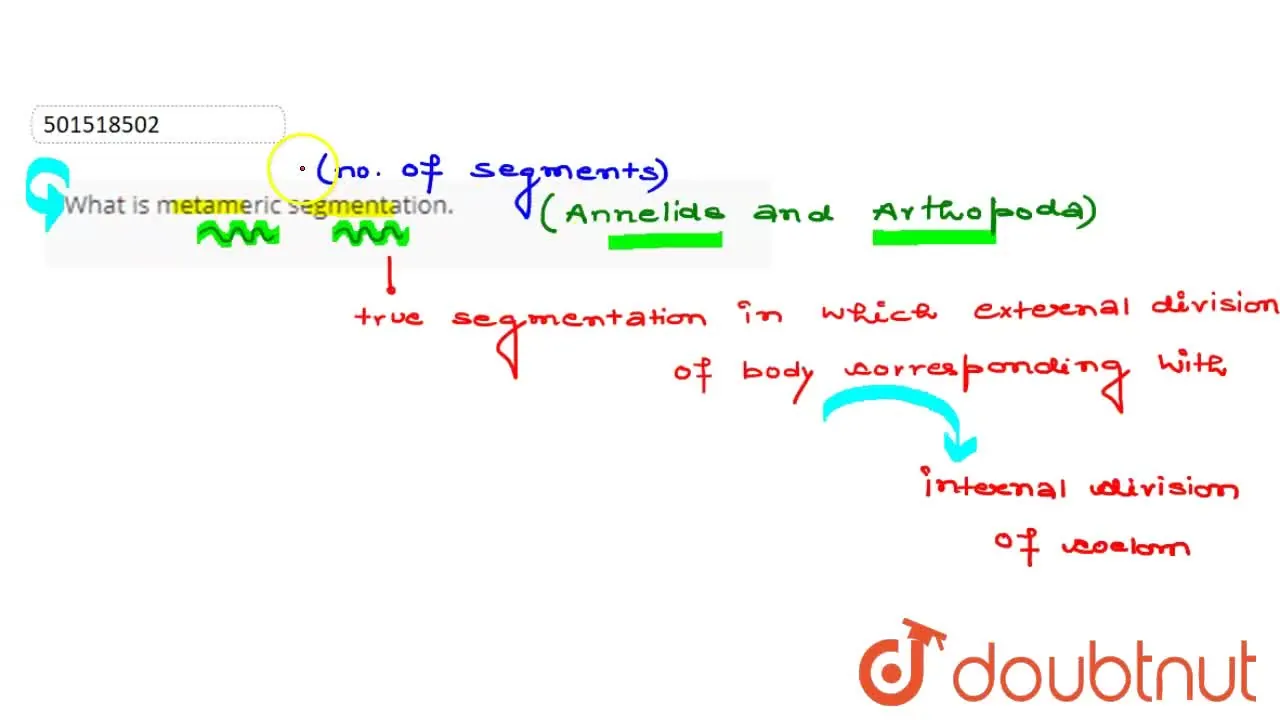 501518502
(no. of segments)
What is metameric segmentation.
(Annelida and Arthopoda)
true segmentation in which external division
of body corresponding with
internal division
of coelom
doubtnut